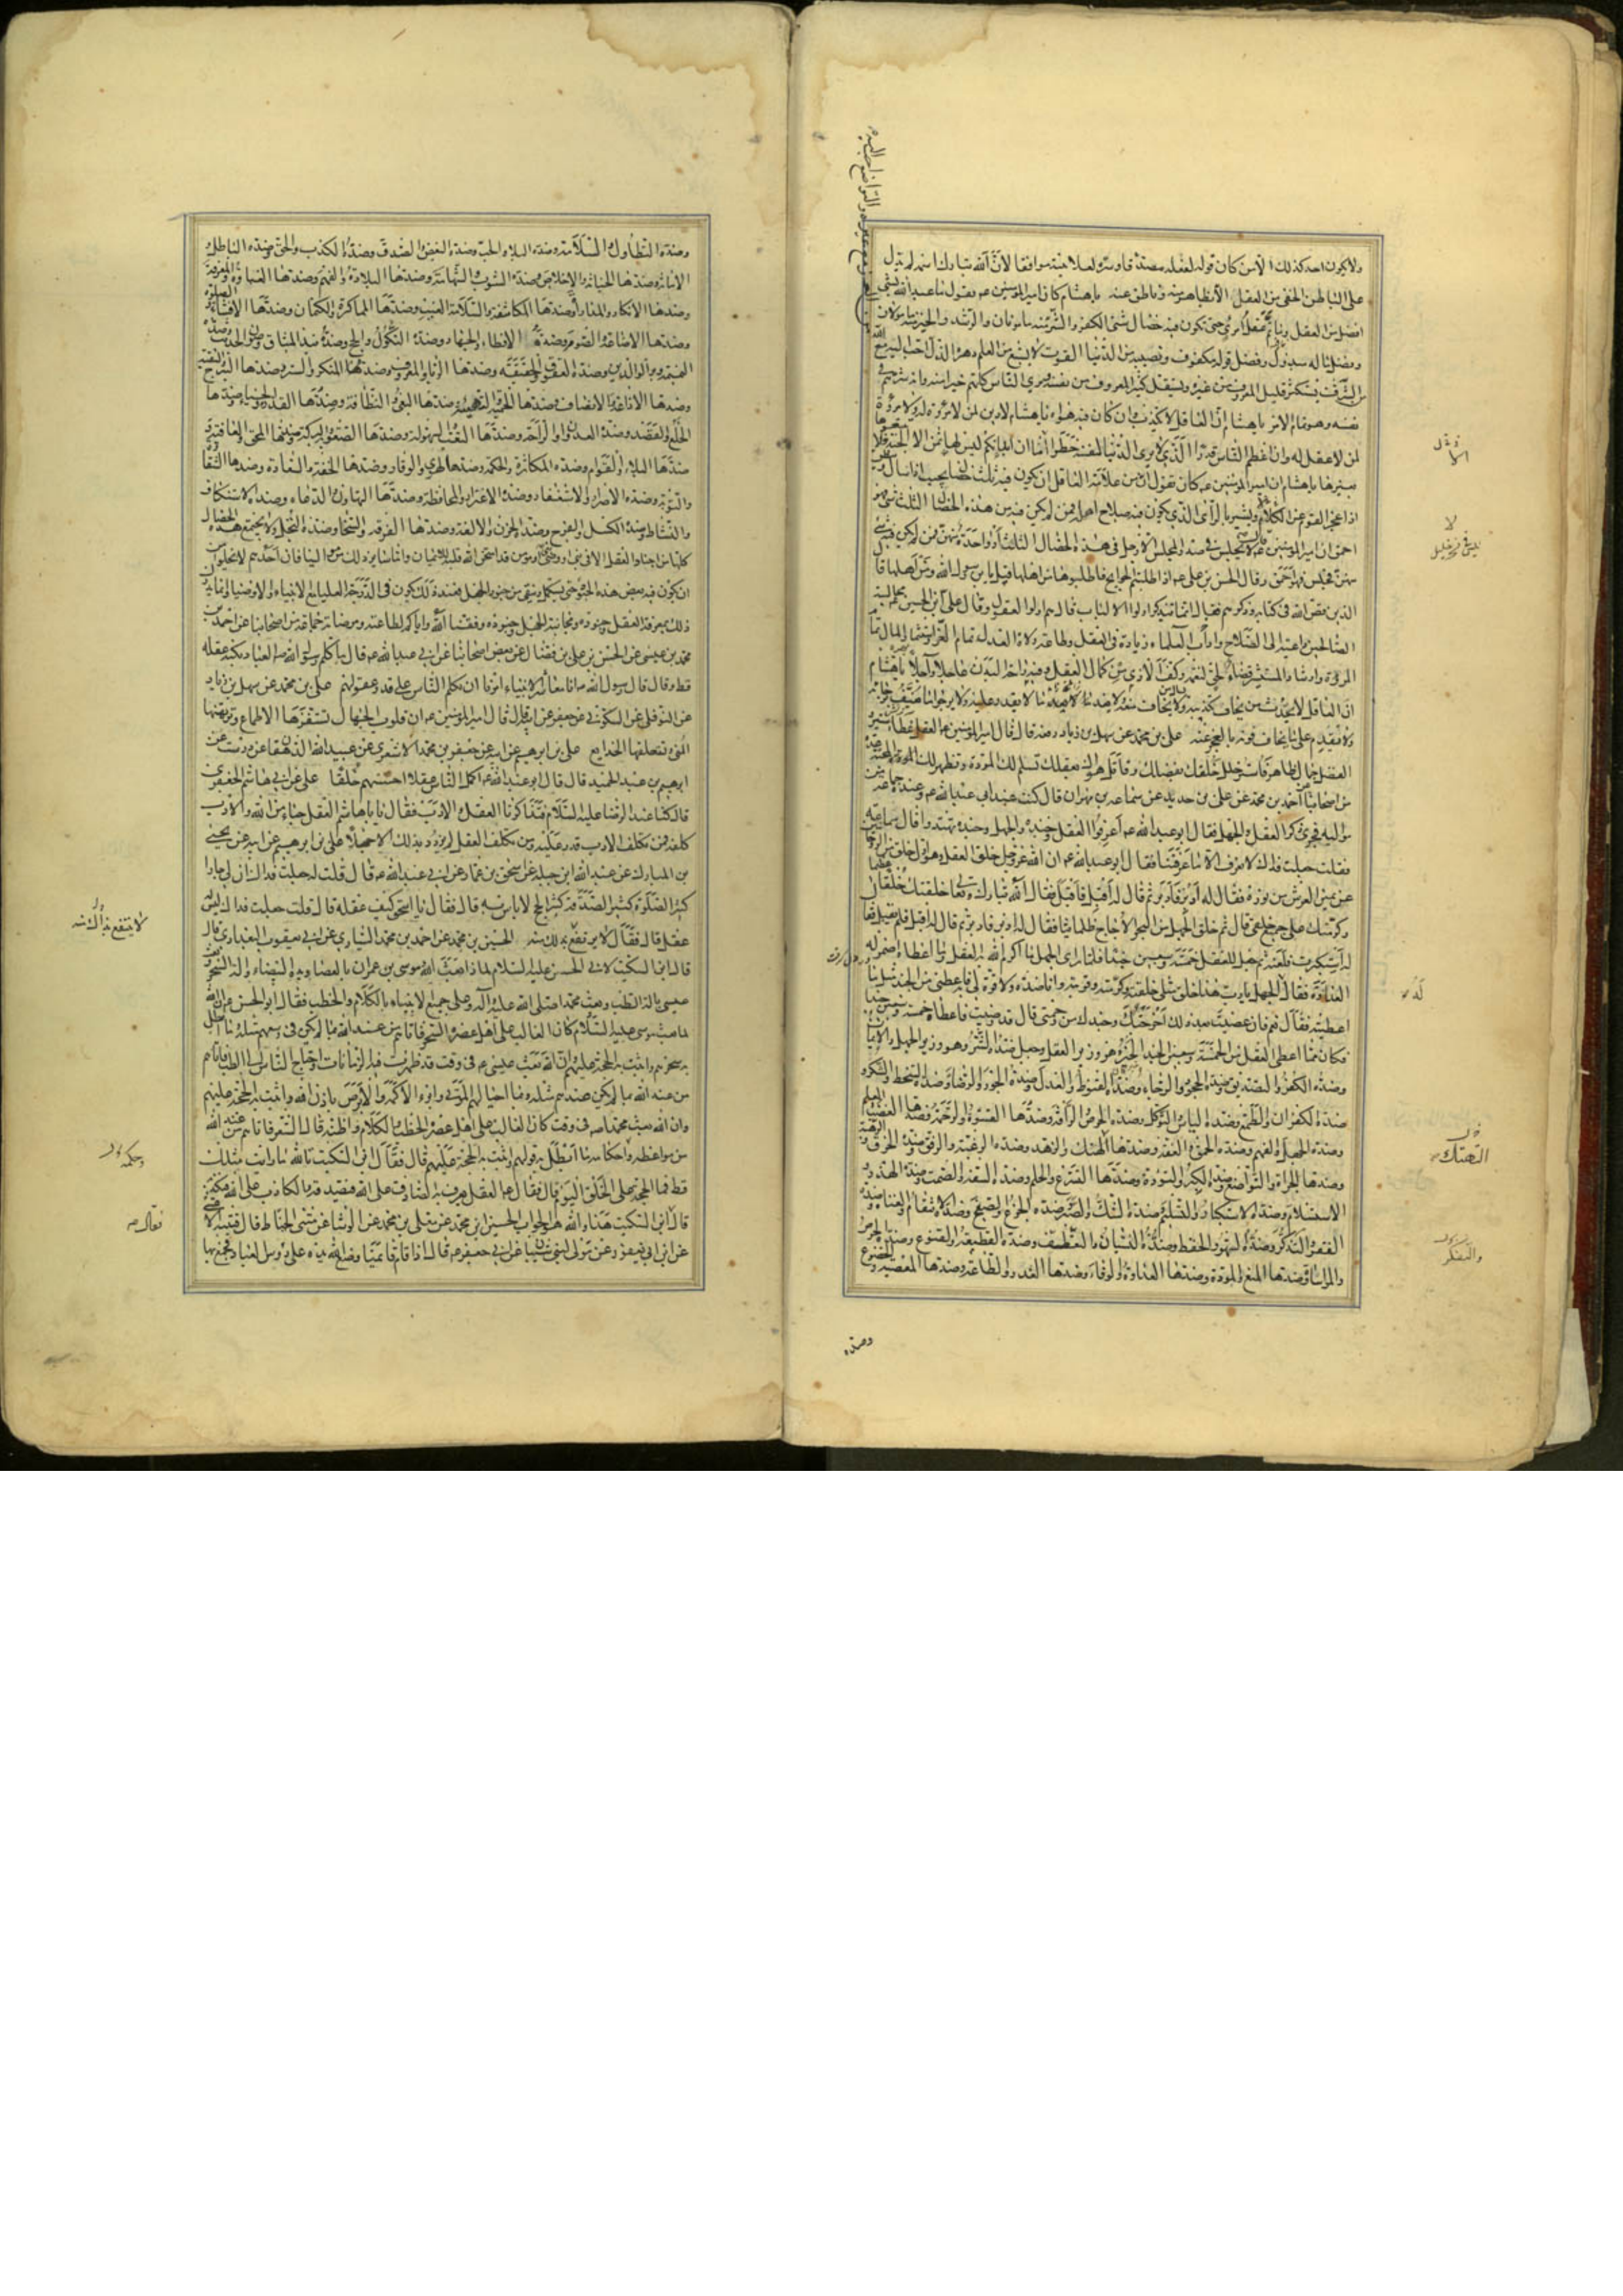 ولا يكون احد كذلك الا من كان قوله لفعله مصدقا وسره لعلانيته موافقا لان الله تبارك اسمه لم يدل
على الباطن الخفي من العقل الا بظاهر منه وناطق عنه يا هشام كان امير المؤمنين عم يقول ما عبد الله بشئ
افضل من العقل وما تم عقل امرئ حتى تكون فيه خصال شتى الكفر والشر منه مامونان والرشد والخير منه مامولان
وفضل ماله مبذول وفضل قوله مكفوف ونصيبه من الدنيا القوت لا يشبع من العلم دهره الذل احب اليه مع الله
من الشرف يستكثر قليل المعروف من غيره ويستقل كثير المعروف من نفسه ويرى الناس كلهم خيرا منه وانه شرهم في
نفسه وهو تمام الامر يا هشام ان العاقل لا يكذب وان كان فيه هواه يا هشام لا دين لمن لا مروة له ولا مروة
لمن لا عقل له وان اعظم الناس قدرا الذي لا يرى الدنيا لنفسه خطرا أما ان ابدانكم ليس لها ثمن الا الجنة فلا
بغيرها يا هشام ان امير المؤمنين عم كان يقول ان من علامة العاقل ان يكون فيه ثلث خصال يجيب اذا سئل
اذا عجز القوم عن الكلام ويشير بالرأى الذي يكون فيه صلاح اهله فمن لم يكن فيه من هذه الخصال الثلث شئ فهو
احمق ان امير المؤمنين عم قال لا يجلس في صدر المجلس الا رجل فيه هذه الخصال الثلث او واحدة منهن فمن لم يكن فيه شئ
منهن فجلس فهو احمق وقال الحسن بن علي عم اذا طلبتم الحوايج فاطلبوها من اهلها قيل يا بن رسول الله ومن اهلها قا
الذين قص الله في كتابه وذكرهم فقال انما يتذكر اولوا الالباب قال هم اولوا العقول وقال علي بن الحسين عم مجالسة
الصالحين داعية الى الصلاح واداب العلماء زيادة في العقل وطاعة ولاة العدل تمام العز واستثمار المال تمام
المروة وارشاد المستشير قضاء لحق النعمة وكف الاذى من كمال العقل وفيه راحة البدن عاجلا وآجلا يا هشام
ان العاقل لا يحدث من يخاف تكذيبه ولا يسال من يخاف منعه ولا يعد ما لا يقدر عليه ولا يرجو ما يعنف برجائه
ولا يقدم على ما يخاف فوته بالعجز عنه علي بن محمد عن سهل بن زياد رفعه قال قال امير المؤمنين عم العقل غطاء ستير
والفضل جمال ظاهر فاستر خلل خلقك بفضلك وقاتل هواك بعقلك تسلم لك المودة وتظهر لك المحبة عدة
من اصحابنا عن احمد بن محمد عن علي بن حديد عن سماعة بن مهران قال كنت عند ابي عبد الله عم وعنده جماعة من
مواليه فجرى ذكر العقل والجهل فقال ابو عبد الله عم اعرفوا العقل وجنده والجهل وجنده تهتدوا قال سماعة
فقلت جعلت فداك لا نعرف الا ما عرفتنا فقال ابو عبد الله عم ان الله عز وجل خلق العقل وهو اول خلق من الروحانيين
عن يمين العرش من نوره فقال له ادبر فادبر ثم قال له اقبل فاقبل فقال الله تبارك وتعا خلقتك خلقا عظيما
وكرمتك على جميع خلقي قال ثم خلق الجهل من البحر الاجاج ظلمانيا فقال له ادبر فادبر ثم قال له اقبل فلم يقبل فقا
له استكبرت فلعنه ثم جعل للعقل خمسة وسبعين جندا فلما راى الجهل ما اكرم الله به العقل وما اعطاه اضمر له
العداوة فقال الجهل يا رب هذا خلق مثلي خلقته وكرمته وقويته وانا ضده ولا قوة لي به فاعطني من الجند مثل ما
اعطيته فقال نعم فان عصيت بعد ذلك اخرجتك وجندك من رحمتي قال قد رضيت فاعطاه خمسة وسبعين جندا
فكان مما اعطى العقل من الخمسة وسبعين الجند الخير وهو وزير العقل وجعل ضده الشر وهو وزير الجهل والايمان
وضده الكفر والتصديق وضده الجحود والرجاء وضده القنوط والعدل وضده الجور والرضا وضده السخط والشكر و
ضده الكفران والطمع وضده الياس والتوكل وضده الحرص والرأفة وضدها القسوة والرحمة وضدها الغضب والعلم
وضده الجهل والفهم وضده الحمق والعفة وضدها الهتك والزهد وضده الرغبة والرفق وضده الخرق والرهبة
وضدها الجرأة والتواضع وضده الكبر والتؤدة وضدها التسرع والحلم وضده السفه والصمت وضده الهذر و
الاستسلام وضده الاستكبار والتسليم وضده الشك والصبر وضده الجزع والصفح وضده الانتقام والغنا وضده
الفقر والتذكر وضده السهو والحفظ وضده النسيان والتعطف وضده القطيعة والقنوع وضده الحرص
والمواساة وضدها المنع والمودة وضدها العداوة والوفاء وضدها الغدر والطاعة وضدها المعصية والخضوع
الامثل
لا
له
التهتك
والتفكر
وضده
وضده التطاول والسلامة وضده البلاء والحب وضده البغض والصدق وضده الكذب والحق وضده الباطل و
الامانة وضدها الخيانة والاخلاص وضده الشوب والشهامة وضدها البلادة والفهم وضدها الغباوة والمعرفة
وضدها الانكار والمداراة وضدها المكاشفة وسلامة الغيب وضدها المماكرة والكتمان وضدها الافشاء والصلوة
وضدها الاضاعة والصوم وضده الافطار والجهاد وضده النكول والحج وضده نبذ الميثاق وصون الحديث وضده
النميمة وبر الوالدين وضده العقوق والحقيقة وضدها الريا والمعروف وضده المنكر والستر وضدها التبرج والتقية
وضدها الاذاعة والانصاف وضدها الحمية والتهيئة وضدها البغي والنظافة وضدها القذر والحياء وضدها
الخلع والقصد وضده العدوان والراحة وضدها التعب والسهولة وضدها الصعوبة والبركة وضدها المحق والعافية و
ضدها البلاء والقوام وضده المكاثرة والحكمة وضدها الهوى والوقار وضدها الخفة والسعادة وضدها الشقا
والتوبة وضده الاصرار والاستغفار وضده الاغترار والمحافظة وضدها التهاون والدعاء وضده الاستنكاف
والنشاط وضده الكسل والفرح وضده الحزن والالفة وضدها الفرقة والسخا وضده البخل ولا يجتمع هذه الخصال
كلها من اجناد العقل الا في نبي او وصي نبي او مؤمن قد امتحن الله قلبه للايمان واما سائر ذلك من موالينا فان احدهم لا يخلو من
ان يكون فيه بعض هذه الجنود حتى يستكمل وينقى من جنود الجهل فعند ذلك يكون في الدرجة العليا مع الانبياء والاوصياء وانما يدرك
ذلك بمعرفة العقل وجنوده ومجانبة الجهل وجنوده وفقنا الله واياكم لطاعته ومرضاته جماعة من اصحابنا عن احمد بن
محمد بن عيسى عن الحسن بن علي بن فضال عن بعض اصحابنا عن ابي عبد الله عم قال ما كلم رسول الله ص العباد بكنه عقله
قط وقال قال رسول الله ص انا معاشر الانبياء امرنا ان نكلم الناس على قدر عقولهم علي بن محمد عن سهل بن زياد
عن النوفلي عن السكوني عن جعفر عن ابيه قال قال امير المؤمنين عم ان قلوب الجهال تستفزها الاطماع وترتهنها
المنى وتستعلقها الخدايع علي بن ابرهيم عن ابيه عن جعفر بن محمد الاشعري عن عبيد الله الدهقان عن درست عن
ابرهيم بن عبد الحميد قال قال ابو عبد الله عم اكمل الناس عقلا احسنهم خلقا علي عن ابي هاشم الجعفري
قال كنا عند الرضا عليه السلام فتذاكرنا العقل والادب فقال يا ابا هاشم العقل حباء من الله والادب
كلفة فمن تكلف الادب قدر عليه ومن تكلف العقل لم يزدد بذلك الا جهلا علي بن ابرهيم عن ابيه عن يحيى
بن المبارك عن عبد الله ابن جبلة عن اسحق بن عمار عن ابي عبد الله عم قال قلت له جعلت فداك ان لي جارا
كثير الصلوة كثير الصدقة كثير الحج لا باس به قال فقال يا اسحق كيف عقله قال قلت جعلت فداك ليس له
عقل قال فقال لا يرتفع بذلك منه الحسين بن محمد عن احمد بن محمد السياري عن ابي يعقوب البغدادي قال
قال ابن السكيت لابي الحسن عليه السلام لماذا بعث الله موسى بن عمران بالعصا ويده البيضاء وآلة السحر وبعث
عيسى بالة الطب وبعث محمدا صلى الله عليه وآله وعلى جميع الانبياء بالكلام والخطب فقال ابو الحسن عم ان الله
لما بعث موسى عليه السلام كان الغالب على اهل عصره السحر فاتاهم من عند الله بما لم يكن في وسعهم مثله وما ابطل
به سحرهم واثبت به الحجة عليهم وان الله بعث عيسى عم في وقت قد ظهرت فيه الزمانات واحتاج الناس الى الطب فاتاهم
من عند الله بما لم يكن عندهم مثله وبما احيا لهم الموتى وابرء الاكمه والابرص باذن الله واثبت به الحجة عليهم
وان الله بعث محمدا ص في وقت كان الغالب على اهل عصره الخطب والكلام واظنه قال الشعر فاتاهم من عند الله
من مواعظه واحكامه ما ابطل به قولهم واثبت به الحجة عليهم قال فقال ابن السكيت تالله ما رايت مثلك
قط فما الحجة على الخلق اليوم قال فقال عم العقل يعرف به الصادق على الله فيصدقه والكاذب على الله فيكذبه
قال ابن السكيت هذا والله هو الجواب الحسين بن محمد عن معلى بن محمد عن الوشا عن مثنى الحناط عن قتيبة الاعشى
عن ابن ابي يعفور عن مولى لبني شيبان عن ابي جعفر عم قال اذا قام قائمنا وضع الله يده على رؤس العباد فجمع بها
لا ينتفع بذلك منه
وحكمه
فقال